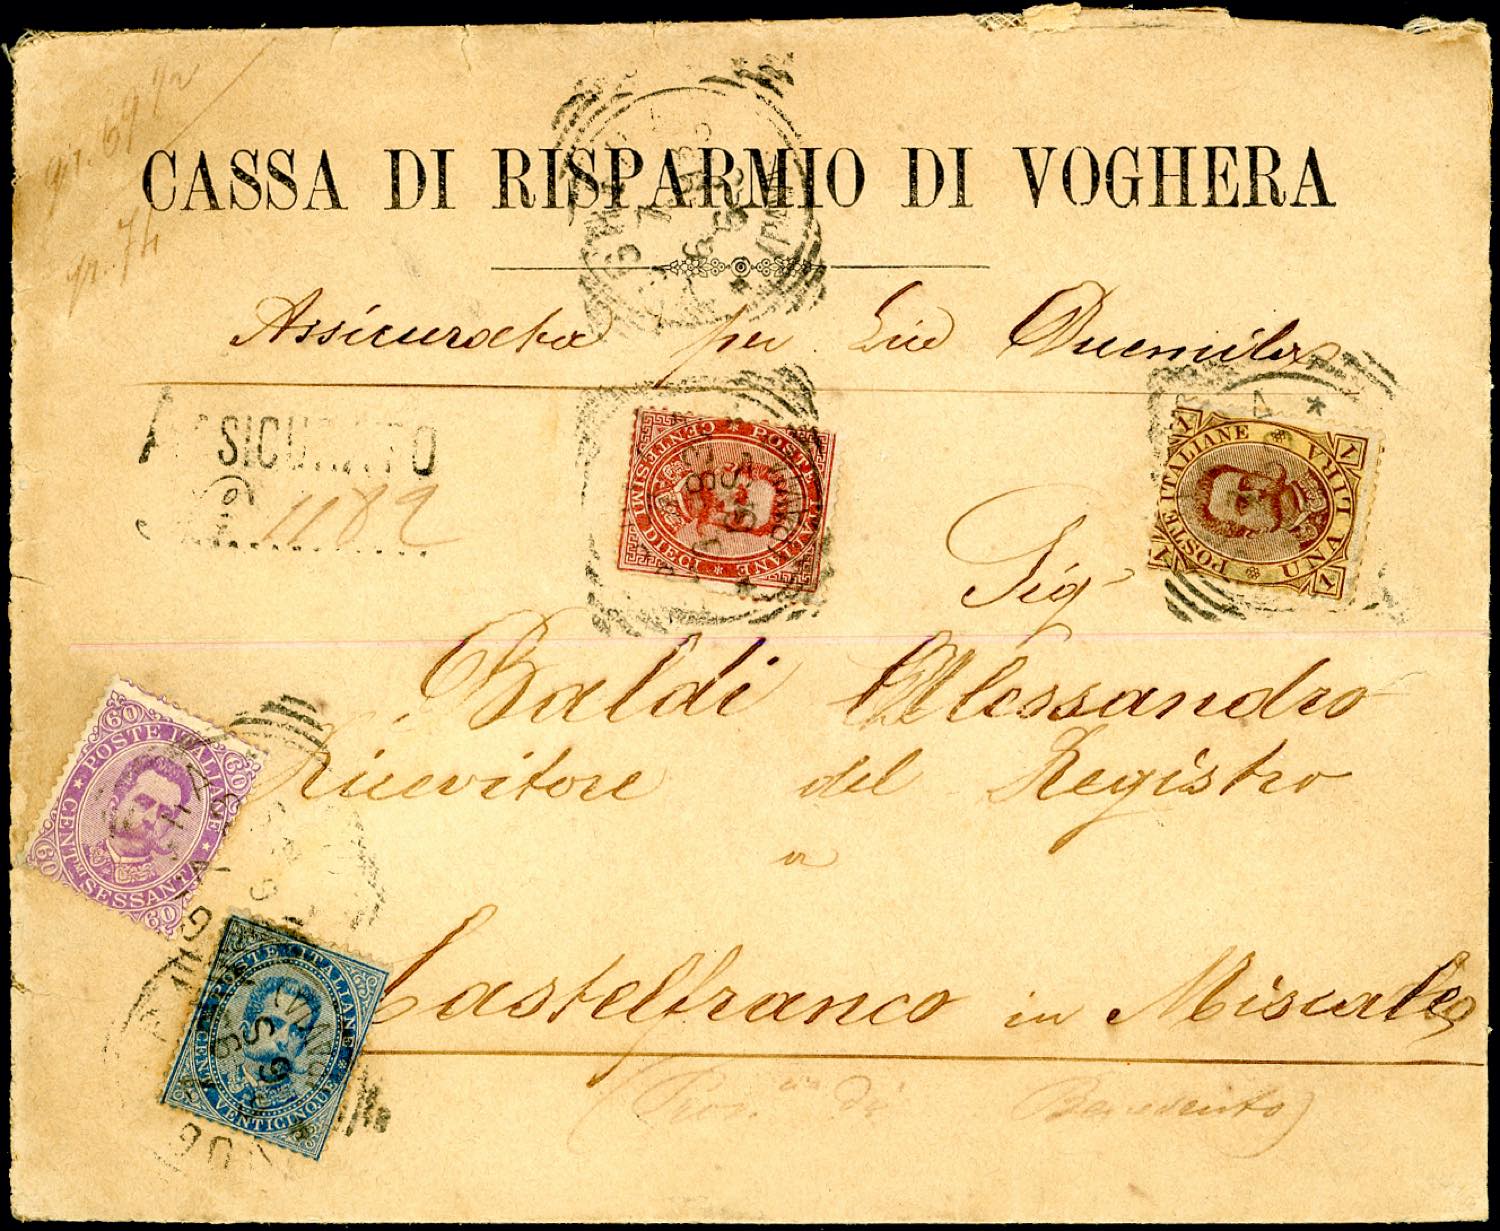 gr. 69
gr. 74
CASSA DI RISPARMIO DI VOGHERA
Assicurata per Lire Duemila
ASSICURATO
1182
POSTE ITALIANE
CENTESIMI DIECI
POSTE ITALIANE
UNA LIRA
1 1 1 1
Sigr
Baldi Alessandro
Ricevitore del Registro
a
Castelfranco in Miscano
(Prov.cia di Benevento)
POSTE ITALIANE
CENT.MI SESSANTA
60 60 60 60
POSTE ITALIANE
CENT. VENTICINQUE